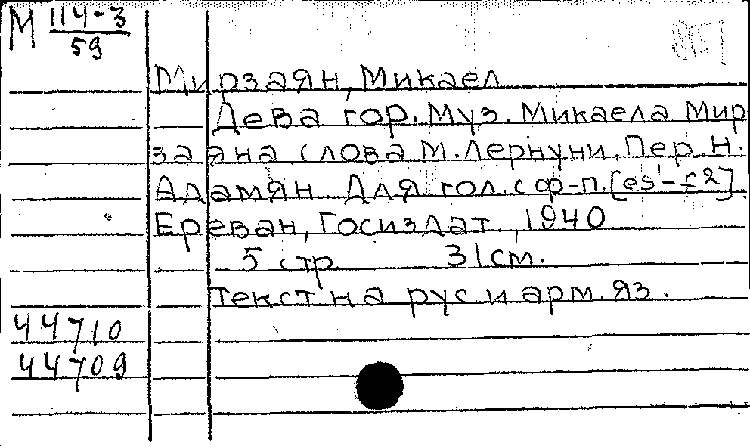 М 114-3
59
Мирзаян, Микаел
Дева гор. Муз. Микаела Мир
заяна Слова М. Лернуни. Пер. Н.
Адамян. Для гол. с ф-п. [es¹-f2].
Ереван, Госиздат, 1940
5 стр. 31 см.
Текст на рус и арм. яз.
44710
44709